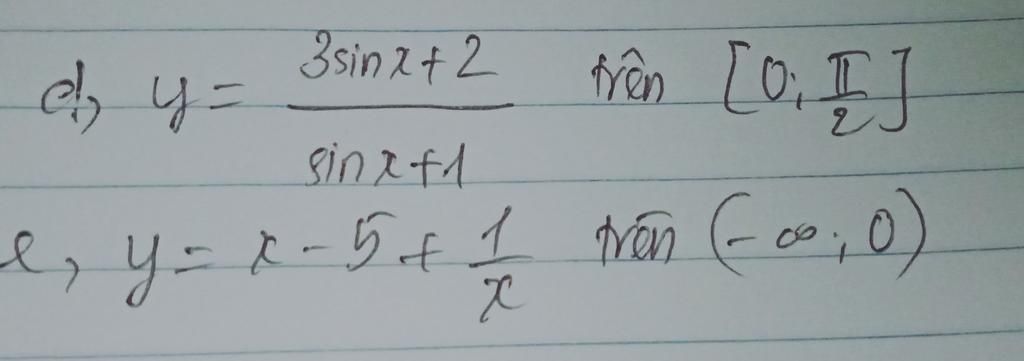 d, y = \frac{3sinx+2}{sinx+1} trên [0; \frac{π}{2}]
e, y = x - 5 + \frac{1}{x} trên (-∞; 0)